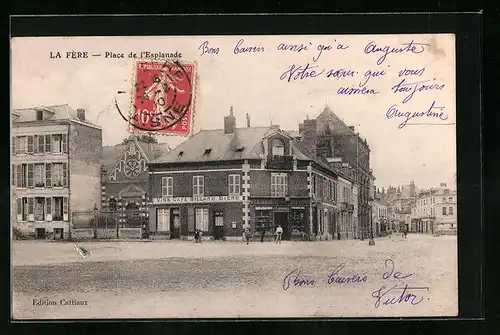 LA FÈRE — Place de l'Esplanade
Bons Baisers ainsi qu'a Auguste
Notre sœur qui vous
aimera toujours
Augustine
10
VINS CAFE BILLARD BIERE
Bons Baisers de
Victor
Edition Cattiaux